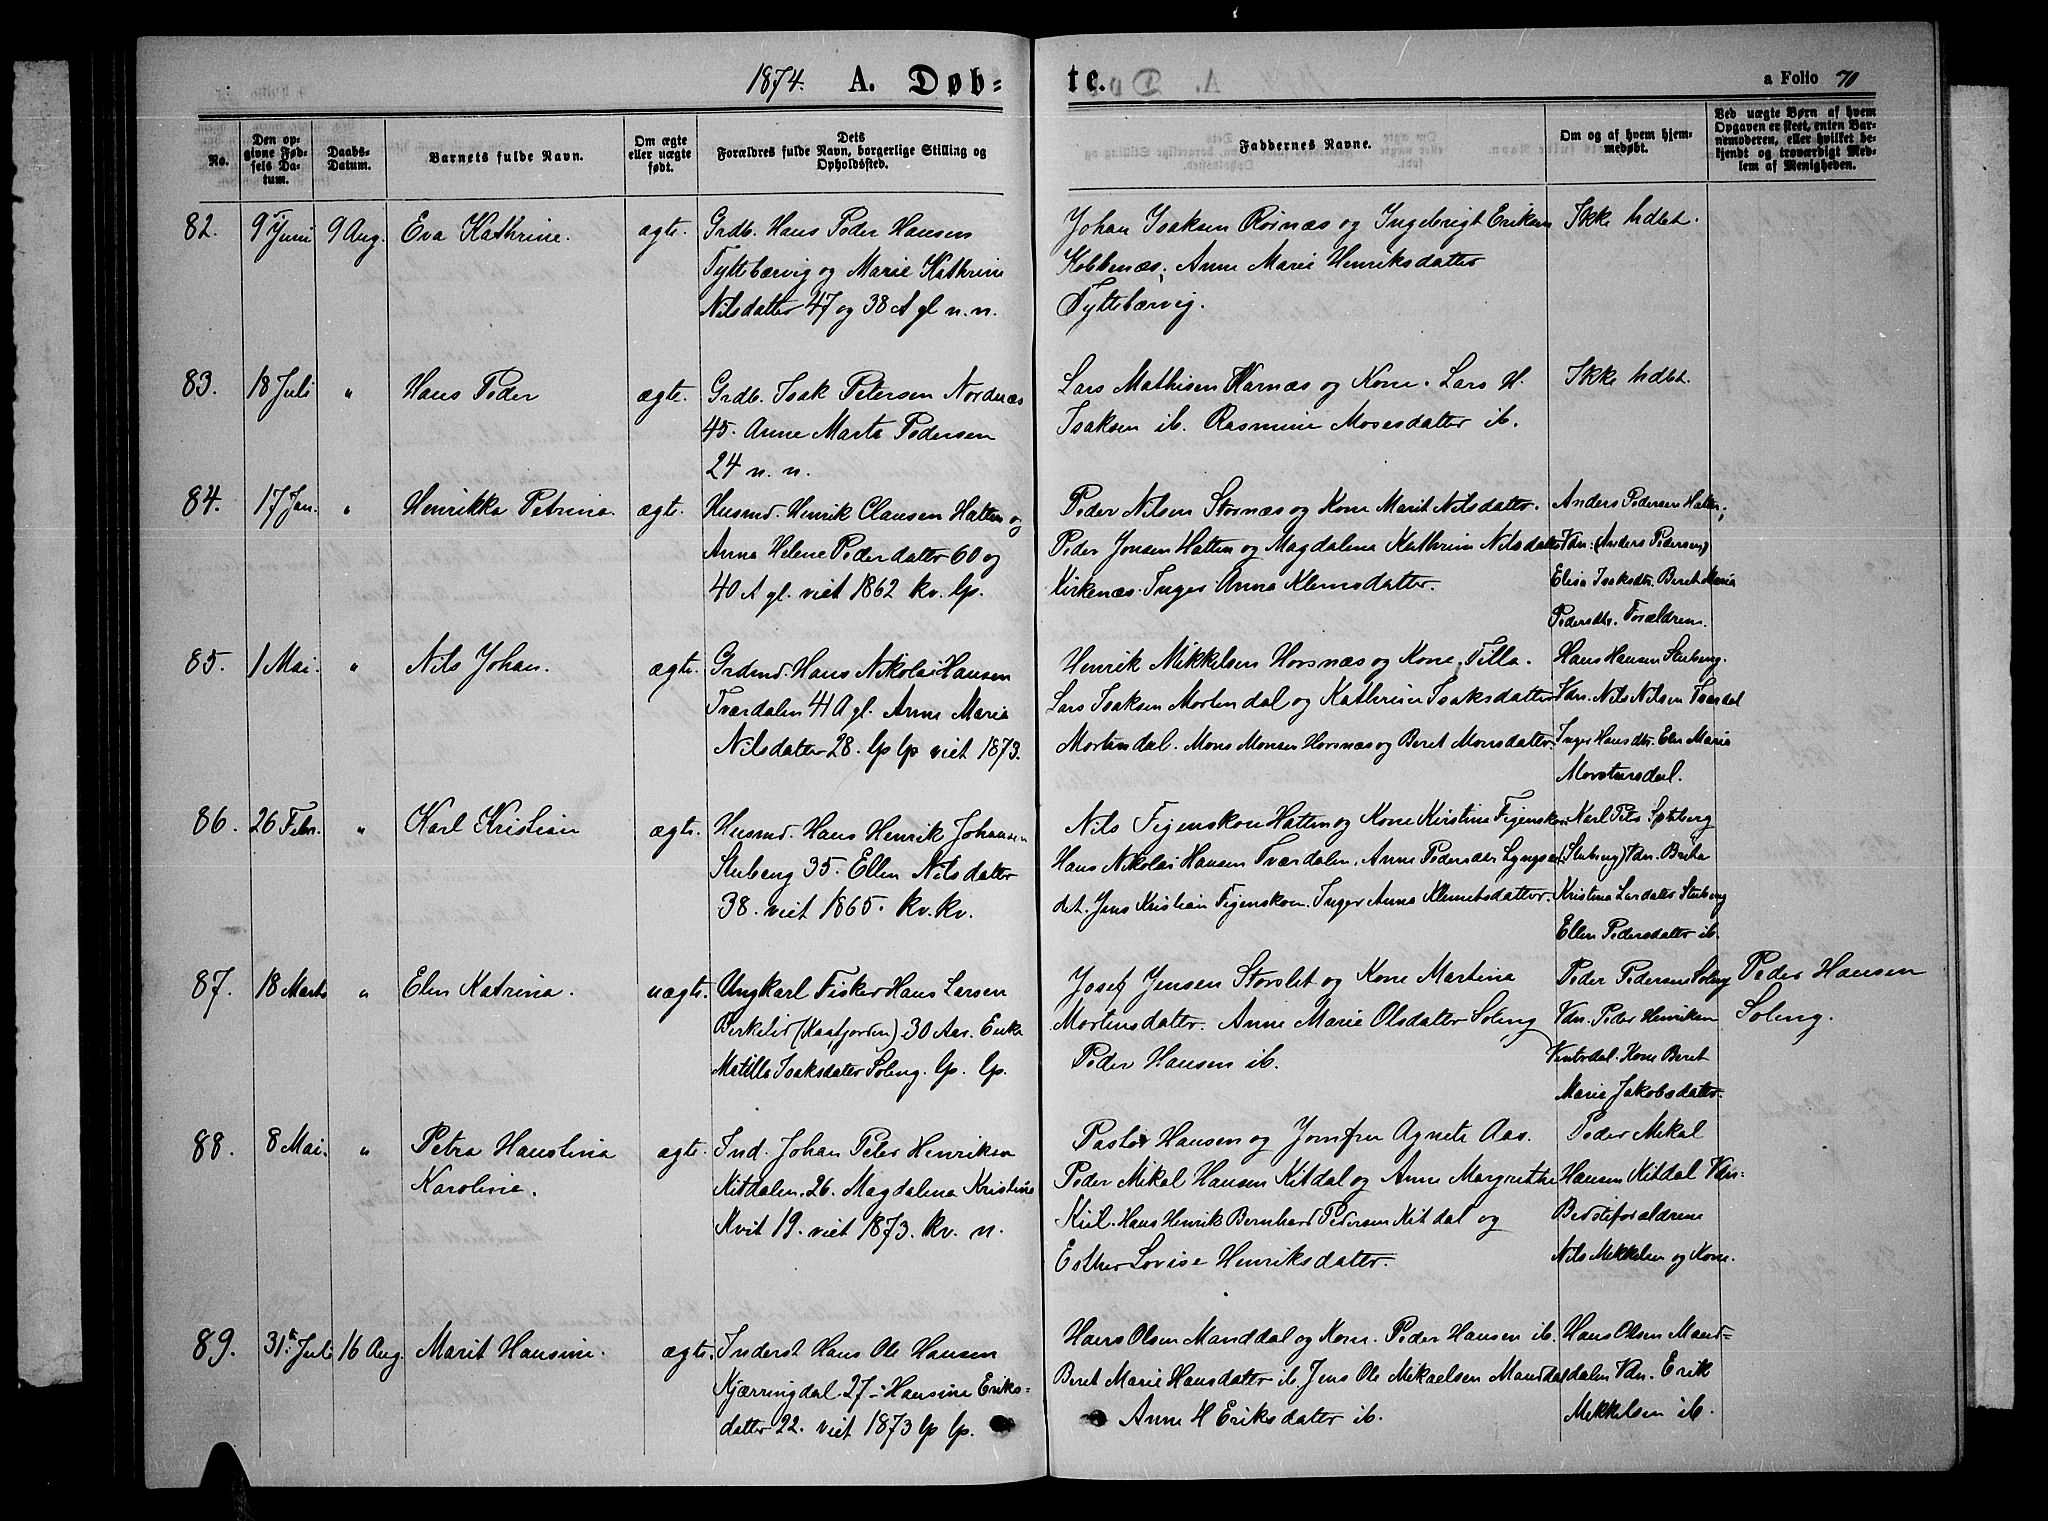 1874. A. Døb= te. a Folio 70
No.
Den op-
givne Fød-
sels Da-
tum.
Daabs-
Datum.
Barnets fulde Navn.
Om ægte
eller uægte
født.
Dets
Forældres fulde Navn, borgerlige Stilling og
Opholdssted.
Faddernes Navne.
Om og af hvem hjem-
medøbt.
Ved uægte Børn af hvem
Opgaven er skeet, enten Bar-
nemoderen, eller hvilket be-
kjendt og troværdigt Med-
lem af Menigheden.
82. 9 Juni 9 Aug. Eva Kathrine. ægte. Grdb. Hans Peder Hansen
Tyttebærvig og Marie Kathrine
Nilsdatter 47 og 38 A gl n. n.
Johan Isaksen Rørnæs og Ingebrigt Eriksen
Kobbenæs, Anne Marie Henriksdatter
Tyttebærvig.
Ikke hdbt.
83. 18 Juli " Hans Peder ægte. Grdb. Isak Petersen Nordnæs
45. Anne Marta Pedersen
24 n. n.
Lars Mathisen Karnæs og Kone. Lars H.
Isaksen ib. Rasmine Mosesdatter ib.
Ikke hdbt.
84. 17 Jan. " Henrikka Petrina. ægte. Husmd. Henrik Clausen Hatten og
Anna Helene Pederdatter 60 og
40 A gl. viet 1862 kv. lp.
Peder Nilsen Stornæs og Kone Marit Nilsdatter.
Peder Jonsen Hatten og Magdalena Kathrin Nilsdatter
Kirkenæs. Inger Anna Klemsdatter.
Anders Pedersen Hatten;
Vdn. (Anders Pedersen)
Elisa Isaksdtr. Beret Maria
Pedersdtr. Forældrene.
85. 1 Mai. " Nils Johan. ægte. Grdmd. Hans Nikolai Hansen
Tværdalen 41 A gl. Anne Maria
Nilsdatter 28. lp lp viet 1873.
Henrik Mikkelsen Horsnæs og Kone, Tilla.
Lars Isaksen Mortendal og Kathrine Isaksdatter
Mortendal. Mons Monsen Horsnæs og Beret Monsdatter.
Hans Hansen Stubeng.
Vdn. Nils Nilsen Tværdal
Inger Hansdtr. Elen Maria
86. 26 Febr. " Karl Kristian ægte. Husmd. Hans Henrik Johansen
Stubeng 35. Ellen Nilsdatter
38. viet 1865. kv. kv.
Nils Figenskou Hatten og Kone Kirstine Figenskou.
Hans Nikolai Hansen Tværdalen. Anne Pedersen Lyngsei-
det. Jens Kristian Figenskou. Inger Anna Klemetsdatter.
(Stubeng) Vdn. Berha
Kristina Larsdatter Stubeng
Ellen Pedersdatter ib.
87. 18 Marts " Elen Katrina. uægte. Ungkarl Fisker Hans Larsen
Birkelid (Kaafjorden) 30 Aar. Enke
Matilla Isaksdatter Soleng. lp. lp.
Josef Jensen Storslet og Kone Martina
Mortensdatter. Anne Marie Olsdatter Soleng
Peder Hansen ib.
Peder Pedersen Soleng
Vdn. Peder Henriksen
Kone Beret
Marie Jakobsdatter.
Peder Hansen
Soleng.
88. 8 Mai. " Petra Hanstina
Karoline.
ægte. Ind. Johan Peter Henriksen
Kitdalen. 26. Magdalena Kristine
Kvit 19. viet 1873. kv. n.
Pastor Hansen og Jomfru Agnete Aas.
Peder Mikal Hansen Kitdal og Anne Margrethe
Kiil. Hans Henrik Bernhard Pedersen Kitdal og
Esther Lovise Henriksdatter.
Peder Mikal
Hansen Kitdal Vdn.
Bedsteforældrene
Nils Mikkelsen og Kone.
89. 31te Juli 16 Aug. Marit Hansine. ægte. Inderst Hans Ole Hansen
Kjærringdal 27 – Hansina Eriks-
datter 22. viet 1873 lp lp.
Hans Olsen Manddal og Kone. Peder Hansen ib.
Beret Marie Hansdatter ib. Jens Ole Mikaelsen Manddal
Anne H Eriksdatter ib.
Hans Olsen Mand-
dalen Vdn. Erik
Mekkelsen ib.